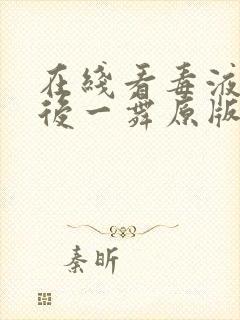 在綫看毒液
後一舞原版
秦昕